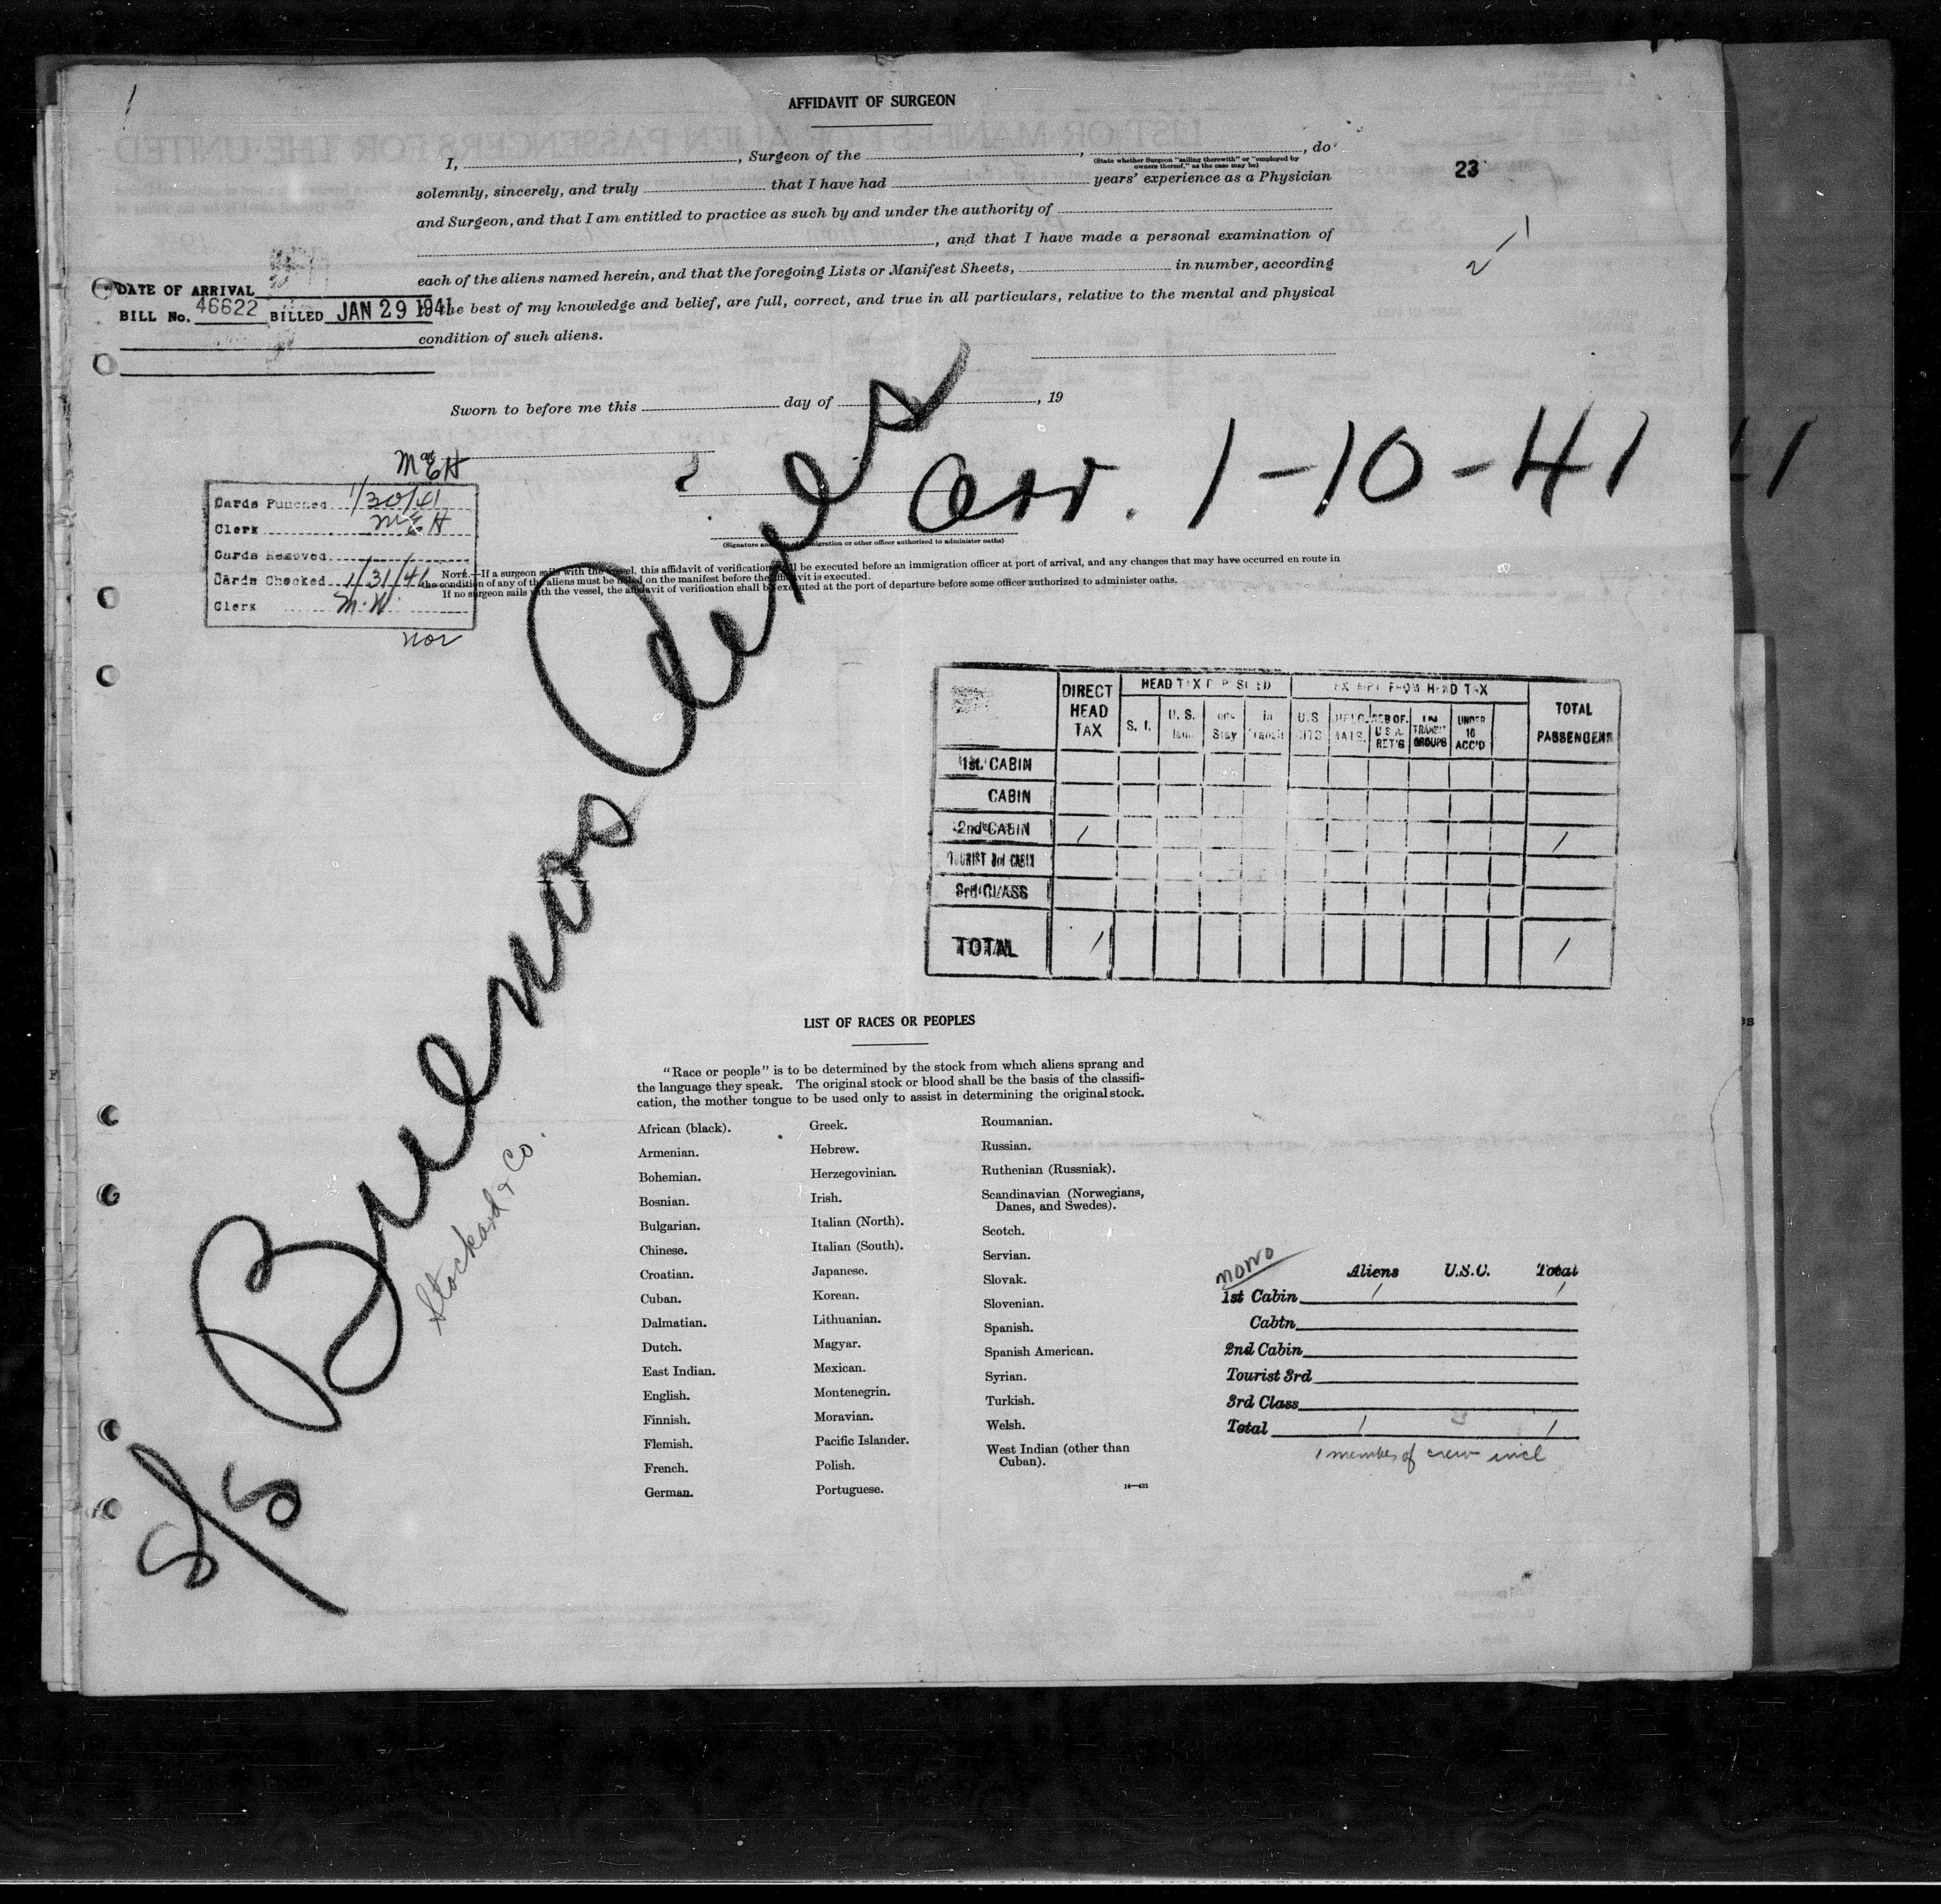 AFFIDAVIT OF SURGEON
I, , Surgeon of the , , do
(State whether Surgeon "sailing therewith" or "employed by
owners thereof," as the case may be)
23
solemnly, sincerely, and truly that I have had years' experience as a Physician
and Surgeon, and that I am entitled to practice as such by and under the authority of
, and that I have made a personal examination of
each of the aliens named herein, and that the foregoing Lists or Manifest Sheets, in number, according
the best of my knowledge and belief, are full, correct, and true in all particulars, relative to the mental and physical
condition of such aliens.
DATE OF ARRIVAL
BILL No. 46622 BILLED JAN 29 1941
Sworn to before me this day of , 19
Arr. 1-10-41
McEH
Cards Punched 1/30/41
Clerk McEH
Cards Removed
Cards Checked 1/31/41
Clerk M.W.
nor
(Signature and immigration or other officer authorized to administer oaths)
NOTE.—If a surgeon sails with the vessel, this affidavit of verification shall be executed before an immigration officer at port of arrival, and any changes that may have occurred en route in
the condition of any of the aliens must be noted on the manifest before the affidavit is executed.
If no surgeon sails with the vessel, the affidavit of verification shall be executed at the port of departure before some officer authorized to administer oaths.
S/S Buenos Aires
Stockard & Co.
DIRECT HEAD TAX
HEAD TAX DEPOSITED
EXEMPT FROM HEAD TAX
TOTAL PASSENGERS
S. I.
U. S.
Stay
in Transit
U.S CITS
DIPLO. MATS.
RES OF. U S A. RET'G
IN TRANSIT GROUPS
UNDER 16 ACC'D
1st. CABIN
CABIN
2nd CABIN 1 1
TOURIST 3rd CABIN
3rd CLASS
TOTAL 1 1
LIST OF RACES OR PEOPLES
"Race or people" is to be determined by the stock from which aliens sprang and
the language they speak. The original stock or blood shall be the basis of the classifi-
cation, the mother tongue to be used only to assist in determining the original stock.
African (black).
Armenian.
Bohemian.
Bosnian.
Bulgarian.
Chinese.
Croatian.
Cuban.
Dalmatian.
Dutch.
East Indian.
English.
Finnish.
Flemish.
French.
German.
Greek.
Hebrew.
Herzegovinian.
Irish.
Italian (North).
Italian (South).
Japanese.
Korean.
Lithuanian.
Magyar.
Mexican.
Montenegrin.
Moravian.
Pacific Islander.
Polish.
Portuguese.
Roumanian.
Russian.
Ruthenian (Russniak).
Scandinavian (Norwegians,
Danes, and Swedes).
Scotch.
Servian.
Slovak.
Slovenian.
Spanish.
Spanish American.
Syrian.
Turkish.
Welsh.
West Indian (other than
Cuban).
14—431
Aliens U.S.C. Total
1st Cabin 1 1
Cabin
2nd Cabin
Tourist 3rd
3rd Class
Total 1 1
1 member of crew incl